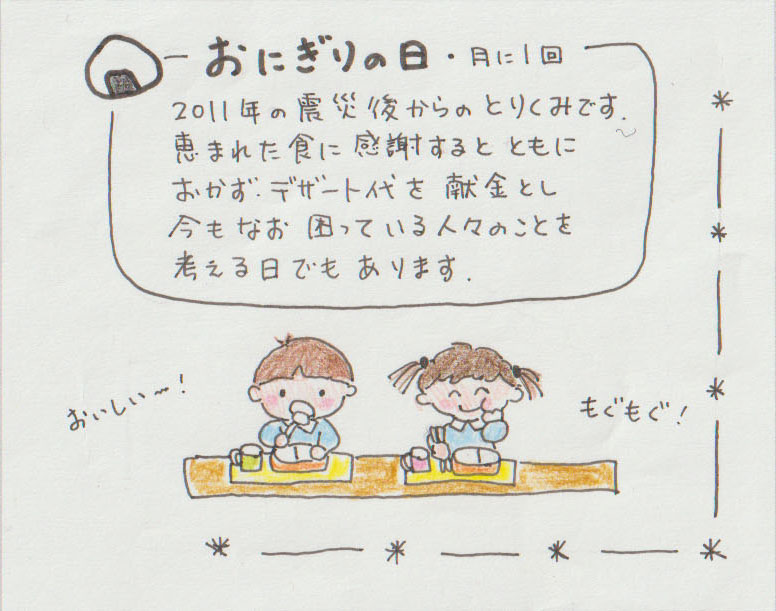 おにぎりの日・月に1回
2011年の震災後からのとりくみです.
恵まれた食に感謝するとともに
おかず.デザート代を献金とし
今もなお困っている人々のことを
考える日でもあります.
おいしい〜!
もぐもぐ!